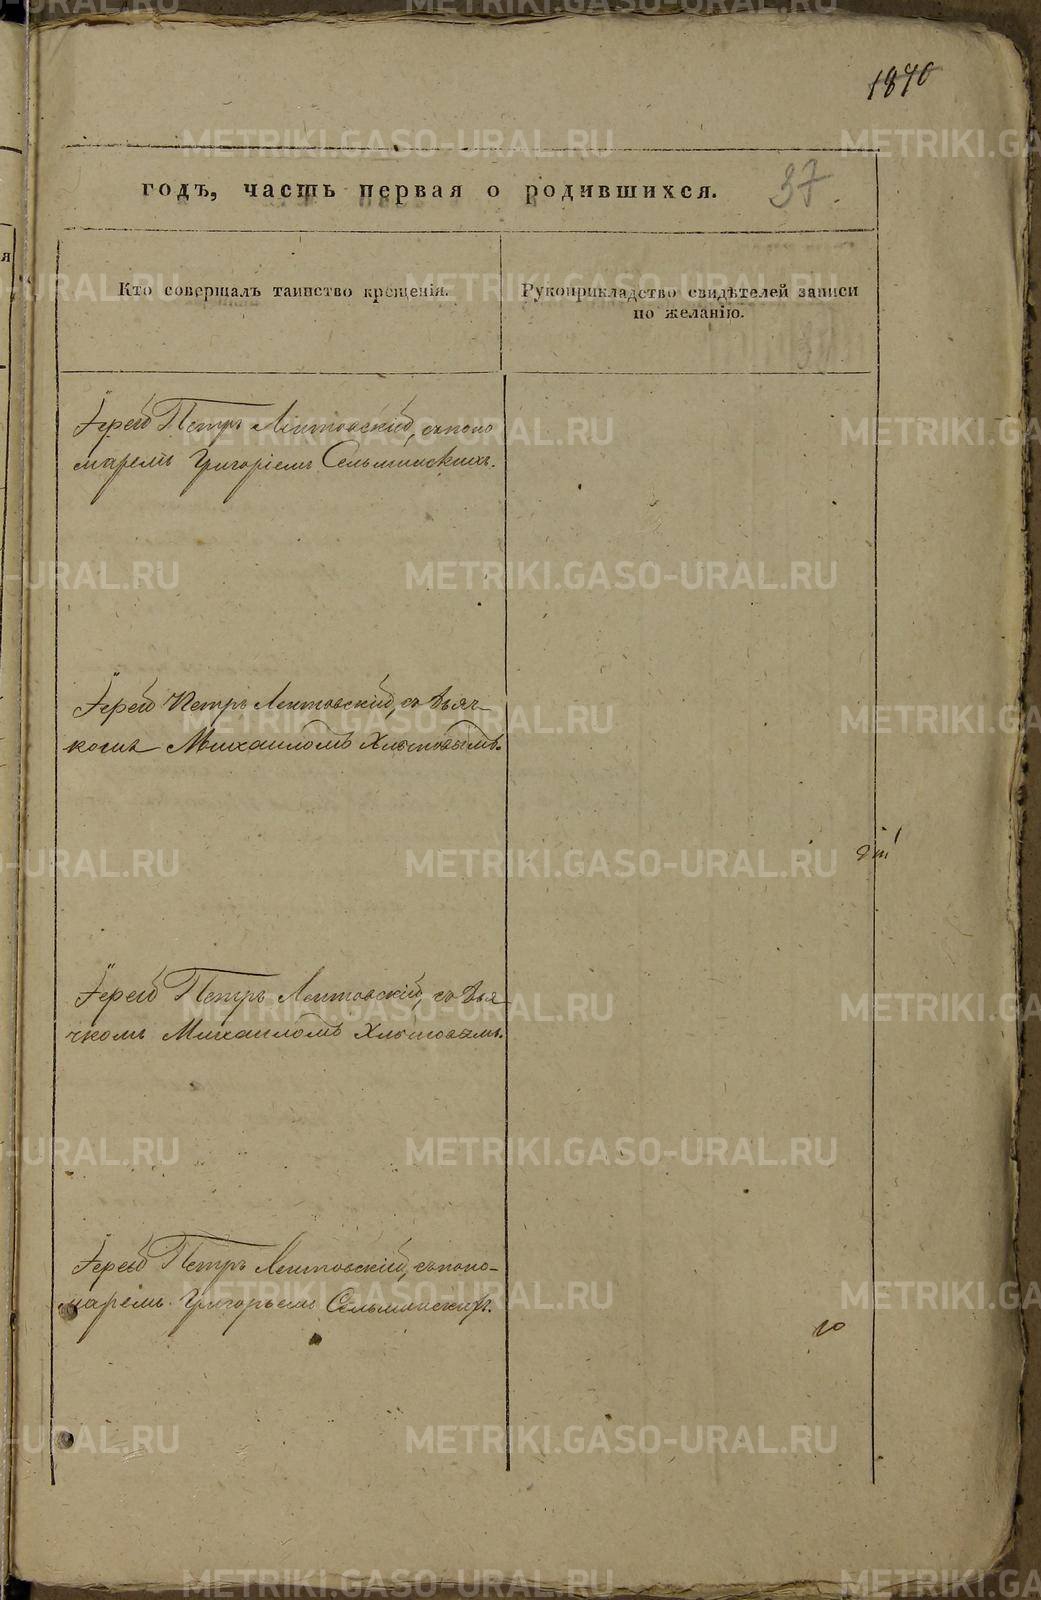 1840
годъ, часть первая о родившихся.
37.
Кто совершалъ таинство крещенія.
Рукоприкладство свидѣтелей записи
по желанію.
Іерей Петръ Лентовскій, съ поно
маремъ Григоріемъ Сельминскихъ.
Іерей Петръ Лентовскій, съ дьяч-
комъ Михаиломъ Хлыновымъ.
Іерей Петръ Лентовскій, съ дья
чкомъ Михаиломъ Хлыновымъ.
Іерей Петръ Лентовскій, съ поно-
маремъ Григорьемъ
METRIKI.GASO-URAL.RU